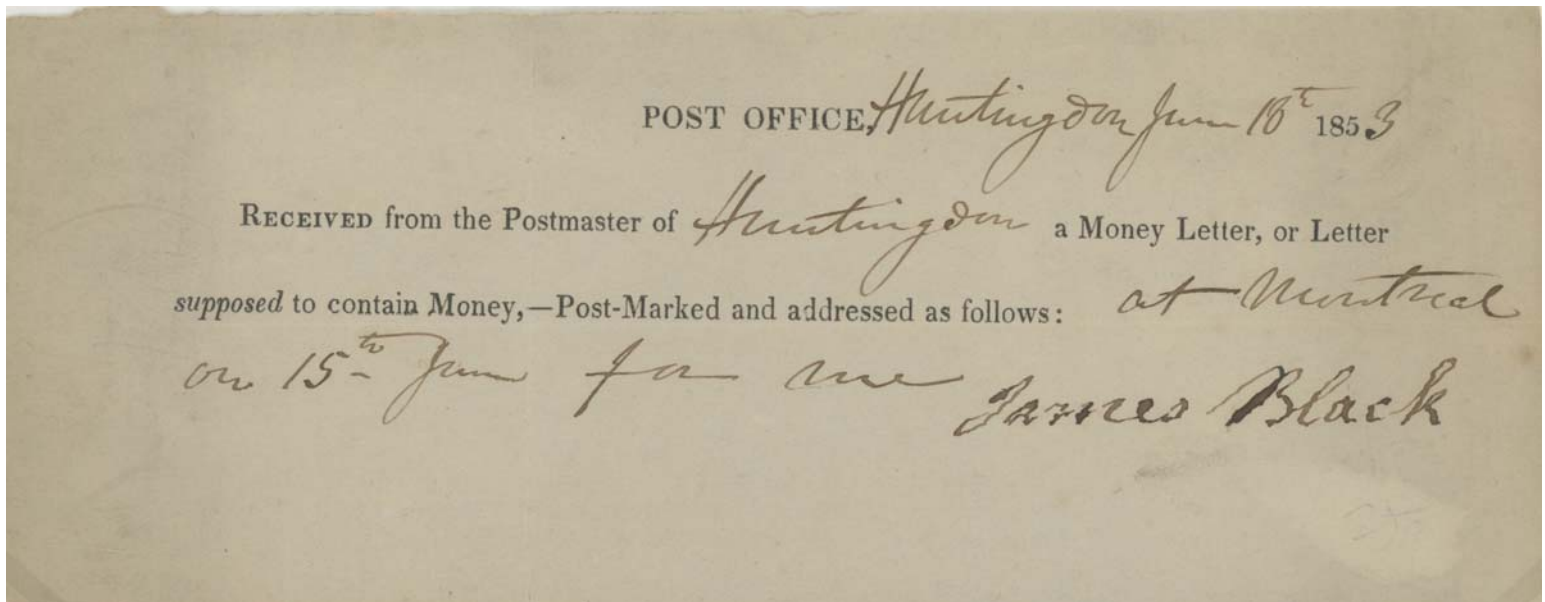 POST OFFICE, Huntingdon June 18th 1853
RECEIVED from the Postmaster of Huntingdon a Money Letter, or Letter
supposed to contain Money,—Post-Marked and addressed as follows: at Montreal
on 15th June for me James Black